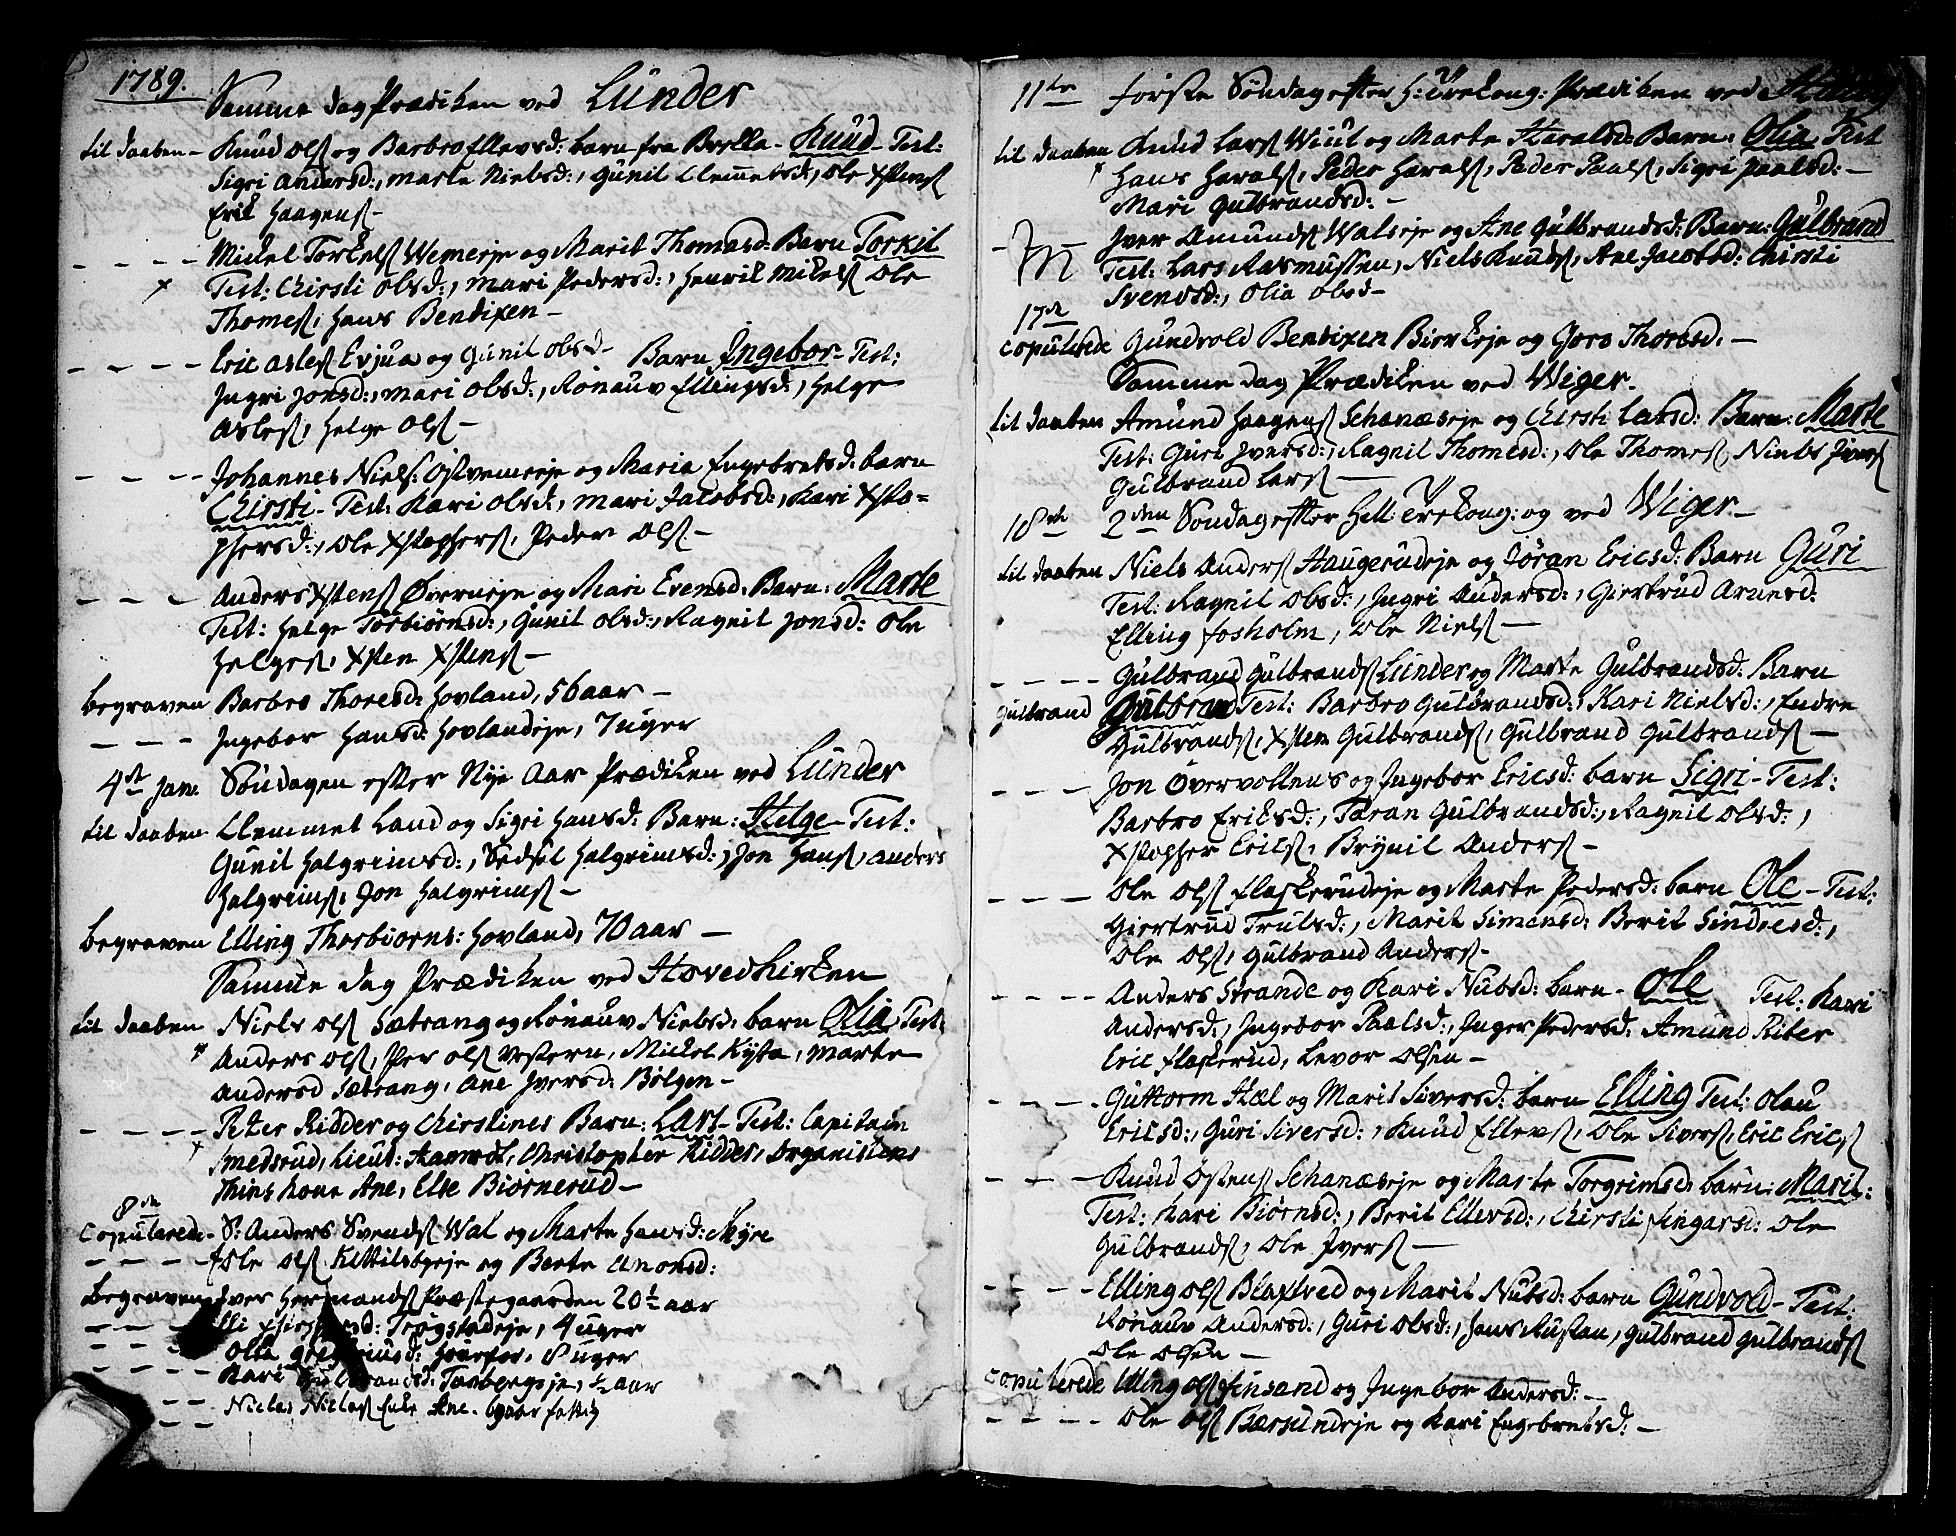 1789.
Samme dag Prædiken ved Lunder
til daaben - Knud Ols og Barbro Ellevsd: barn fra Brølla - Knud - Test:
Sigri Andersd:, Marte Nielsd:, Gunil Clemmetsd:, Ole Xstens
Erik Haagens -
- - - - Mickel Torkels Wemeeje og Marit Thomasd: Barn Torkil
Test: Chirsti Olsd:, Mari Pedersd:, Henrik Mikels Ole
Thomes, Hans Bendixen -
- - - - Eric Asles Evjua og Gunil Olsd - Barn Ingebor - Test:
Ingri Jonsd:, Mari Olsd:, Rønauv Ellingsd:, Helge
Asles, Helge Ols -
- - - Johannes Niels: Østvemeeje og Maria Engebretsd: barn
Chirsti - Test: Kari Olsd:, Mari Jacobsd:, Kari Xsto=
phersd:, Ole Xstophers, Peder Ols -
- - - Anders Xstens Øverneje og Mari Evensd: Barn: Marte
Test: Helge Torbiørnsd:, Gunil Olsd:, Ragnil Jonsd: Ole
Helges, Xsten Xstens -
begraven Barbro Thoresd: Hovland, 56 aar -
- - - Ingebor Hansd: Hovlandeje, 7 uger
4de Jan: Søndagen efter Nye Aar Prædiken ved Lunder
til daaben Clemmet Land og Sigri Hansd: Barn: Helge - Test:
Gunil Halgrimsd:, Sedsel Halgrimsd:, Jon Hans, Anders
Halgrims, Jon Halgrims -
begraven Elling Thorbiørns: Hovland, 70 aar -
Samme dag Prædiken ved Hovedkirken
til daaben Niels Ols Sætrang og Rønauv Nielsd: barn Olia Test:
Anders Ols, Per Ols Vestern, Mickel Kysta, Marte
Andersd Sætrang, Ane Iversd: Bølgen -
- - - - Peter Ridder og Chirstines Barn: Lars - Test: Capitain
Smedsrud, Lieut: Aamodt, Christopher Ridder, Organistens
Thins Kone Ane, Else Biørnerud -
8de
Copulerede - S: Anders Svends Wal og Marte Hansd: Myre
- - - - Ole Ols Kittilsbyeje og Berte Amonsd:
Begraven Iver Hermands Præstegaarden 20 1/2 aar
- - - - Eli Trøgstadeje, 4 uger
- - - Olia Gregriusd: Hourfos, 8 uger
- - - Kari Gulbrandsd: Tanbergseje, 1/2 aar
- - - Niclas Niclas Enke Ane. fattig
11te første Søndag efter H: 3 Kong: Prædiken ved Haug
til daaben Knud Lars Wiul og Marte Haralsd: Barn: Olia Test
Hans Harals, Peder Harals, Peder Paals, Sigri Paalsd: -
Mari Gulbrandsd: -
Iver Amunds Walseje og Ane Gulbrandsd: Barn: Gulbrand
Test: Lars Rasmussen, Niels Knuds, Ane Jacobsd: Chirsti
Svendsd:, Olia Olsd -
17de
Copulerede Gundvold Bendixen Birkeje og Goro Thorsd: -
Samme dag Prædiken ved Wiger.
til daaben Amund Haagens Schanæseje og Chirsti Larsd: Barn: Marte
Test: Guri Iversd:, Ragnil Thomesd:, Ole Thomes, Niels Ivers
Gulbrand Lars -
18de 2den Søndag efter Hell: 3 Kong: og ved Wiger -
til daaben Niels Anders Haugerudeje og Jøran Ericsd: Barn Guri
Test: Ragnil Olsd:, Ingri Andersd:, Giertrud Arnesd:
Elling Fosholm, Ole Niels -
- - - - Gulbrand Gulbrands Lunder og Marte Gulbrandsd: Barn
Gulbrand Gulbrand Test: Barbro Gulbrandsd:, Kari Nielsd:, Endre
Gulbrands, Xsten Gulbrands, Gulbrand Gulbrands -
- - - Jon Øvervollens og Ingebor Ericsd: barn Sigri - Test:
Barbro Eriksd:, Jøran Gulbrandsd:, Ragnil Olsd:,
Xstopher Erics, Brynil Anders -
- - - Ole Ols Flaskerudeje og Marte Pedersd: barn Ole - Test:
Giertrud Trulsd:, Marit Simensd: Berit Sindresd:,
Ole Ols, Gulbrand Anders -
- - - - Anders Strande og Kari Nubsd: barn - Ole Test: Kari
Andersd:, Ingebor Paalsd:, Inger Pedersd: Amund Riter
Eric Flaskerud, Levor Olsen -
- - - - Guttorm Hæl og Marit Siversd: barn Elling Test: Olau
Ericsd:, Guri Siversd:, Knud Ellevs, Ole Sivers, Eric Erics
- - - Knud Østens Schanæseje og Marte Torgrimsd: barn: Marit:
Test: Kari Biørnsd:, Berit Ellersd:, Chirsti Fingarsd: Ole
Gulbrands, Ole Ivers -
- - - - Elling Ols Blaxtved og Marit Nubsd: barn Gundvold - Test:
Rønauv Andersd:, Guri Olsd:, Hans Rustan, Gulbrand Gulbrands
Ole Olsen -
Copulerede Elling Ols Finsand og Ingebor Andersd: -
- - - - Ole Ols Bærsundeje og Kari Engebretsd: -